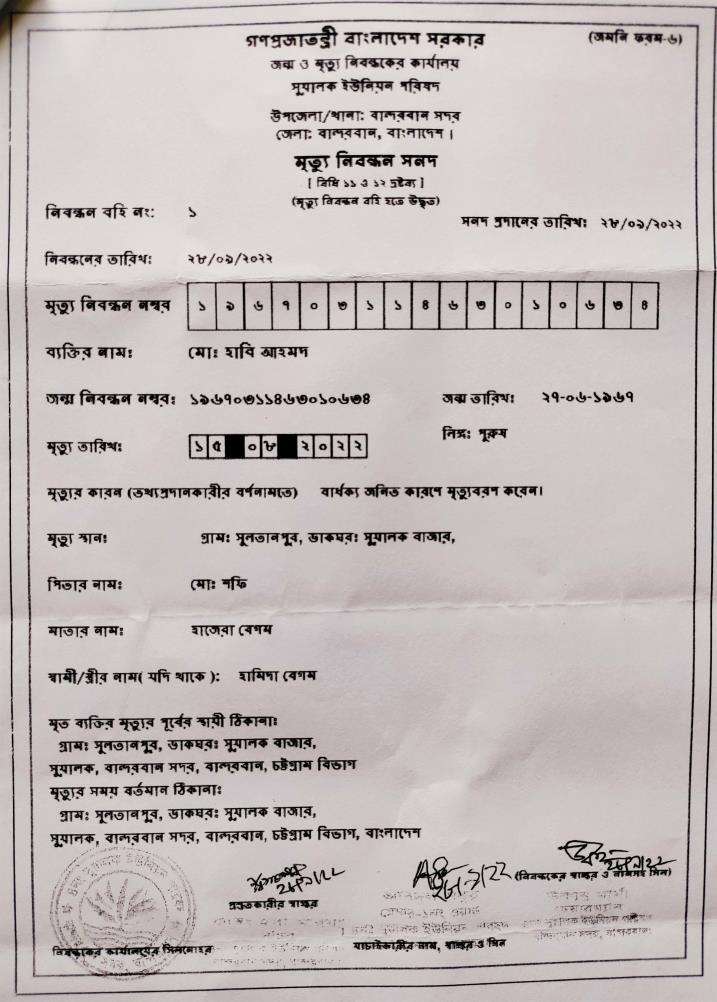 গণপ্রজাতন্ত্রী বাংলাদেশ সরকার
(জমনি ফরম-৬)
জন্ম ও মৃত্যু নিবন্ধকের কার্যালয়
সুয়ালক ইউনিয়ন পরিষদ
উপজেলা/থানা: বান্দরবান সদর
জেলা: বান্দরবান, বাংলাদেশ ।
মৃত্যু নিবন্ধন সনদ
[ বিধি ১১ ও ১২ দ্রষ্টব্য ]
(মৃত্যু নিবন্ধন বহি হতে উদ্ধৃত)
নিবন্ধন বহি নং: ১
সনদ প্রদানের তারিখ: ২৮/০৯/২০২২
নিবন্ধনের তারিখ: ২৮/০৯/২০২২
মৃত্যু নিবন্ধন নম্বর ১ ৯ ৬ ৭ ০ ৩ ১ ১ ৪ ৬ ৩ ০ ১ ০ ৬ ৩ ৪
ব্যক্তির নাম: মো: হাবি আহমদ
জন্ম নিবন্ধন নম্বর: ১৯৬৭০৩১১৪৬৩০১০৬৩৪ জন্ম তারিখ: ২৭-০৬-১৯৬৭
লিঙ্গ: পুরুষ
মৃত্যু তারিখ: ১ ৫ ০ ৮ ২ ০ ২ ২
মৃত্যুর কারন (তথ্যপ্রদানকারীর বর্ণনামতে) বার্ধক্য জনিত কারণে মৃত্যুবরণ করেন।
মৃত্যু স্থান: গ্রাম: সুলতানপুর, ডাকঘর: সুয়ালক বাজার,
পিতার নাম: মো: শফি
মাতার নাম: হাজেরা বেগম
স্বামী/স্ত্রীর নাম( যদি থাকে ): হামিদা বেগম
মৃত ব্যক্তির মৃত্যুর পূর্বের স্থায়ী ঠিকানা:
গ্রাম: সুলতানপুর, ডাকঘর: সুয়ালক বাজার,
সুয়ালক, বান্দরবান সদর, বান্দরবান, চট্টগ্রাম বিভাগ
মৃত্যুর সময় বর্তমান ঠিকানা:
গ্রাম: সুলতানপুর, ডাকঘর: সুয়ালক বাজার,
সুয়ালক, বান্দরবান সদর, বান্দরবান, চট্টগ্রাম বিভাগ, বাংলাদেশ
(নিবন্ধকের স্বাক্ষর ও নামসহ সিল)
প্রস্তুতকারীর স্বাক্ষর
নিবন্ধকের কার্যালয়ের সিলমোহর
যাচাইকারীর নাম, স্বাক্ষর ও সিল